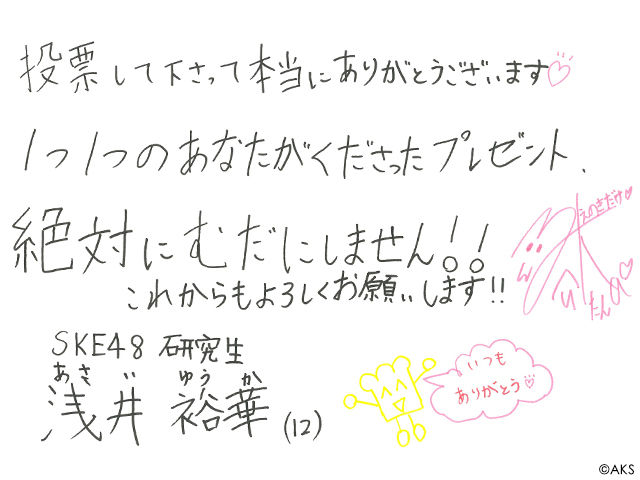 投票して下さって本当にありがとうございます♡
1つ1つのあなたがくださったプレゼント、
絶対にむだにしません!!
これからもよろしくお願いします!!
SKE48 研究生
あさ い ゆう か
浅井 裕華 (12)
えのきだけ♡
いつも
ありがとう♡
©AKS